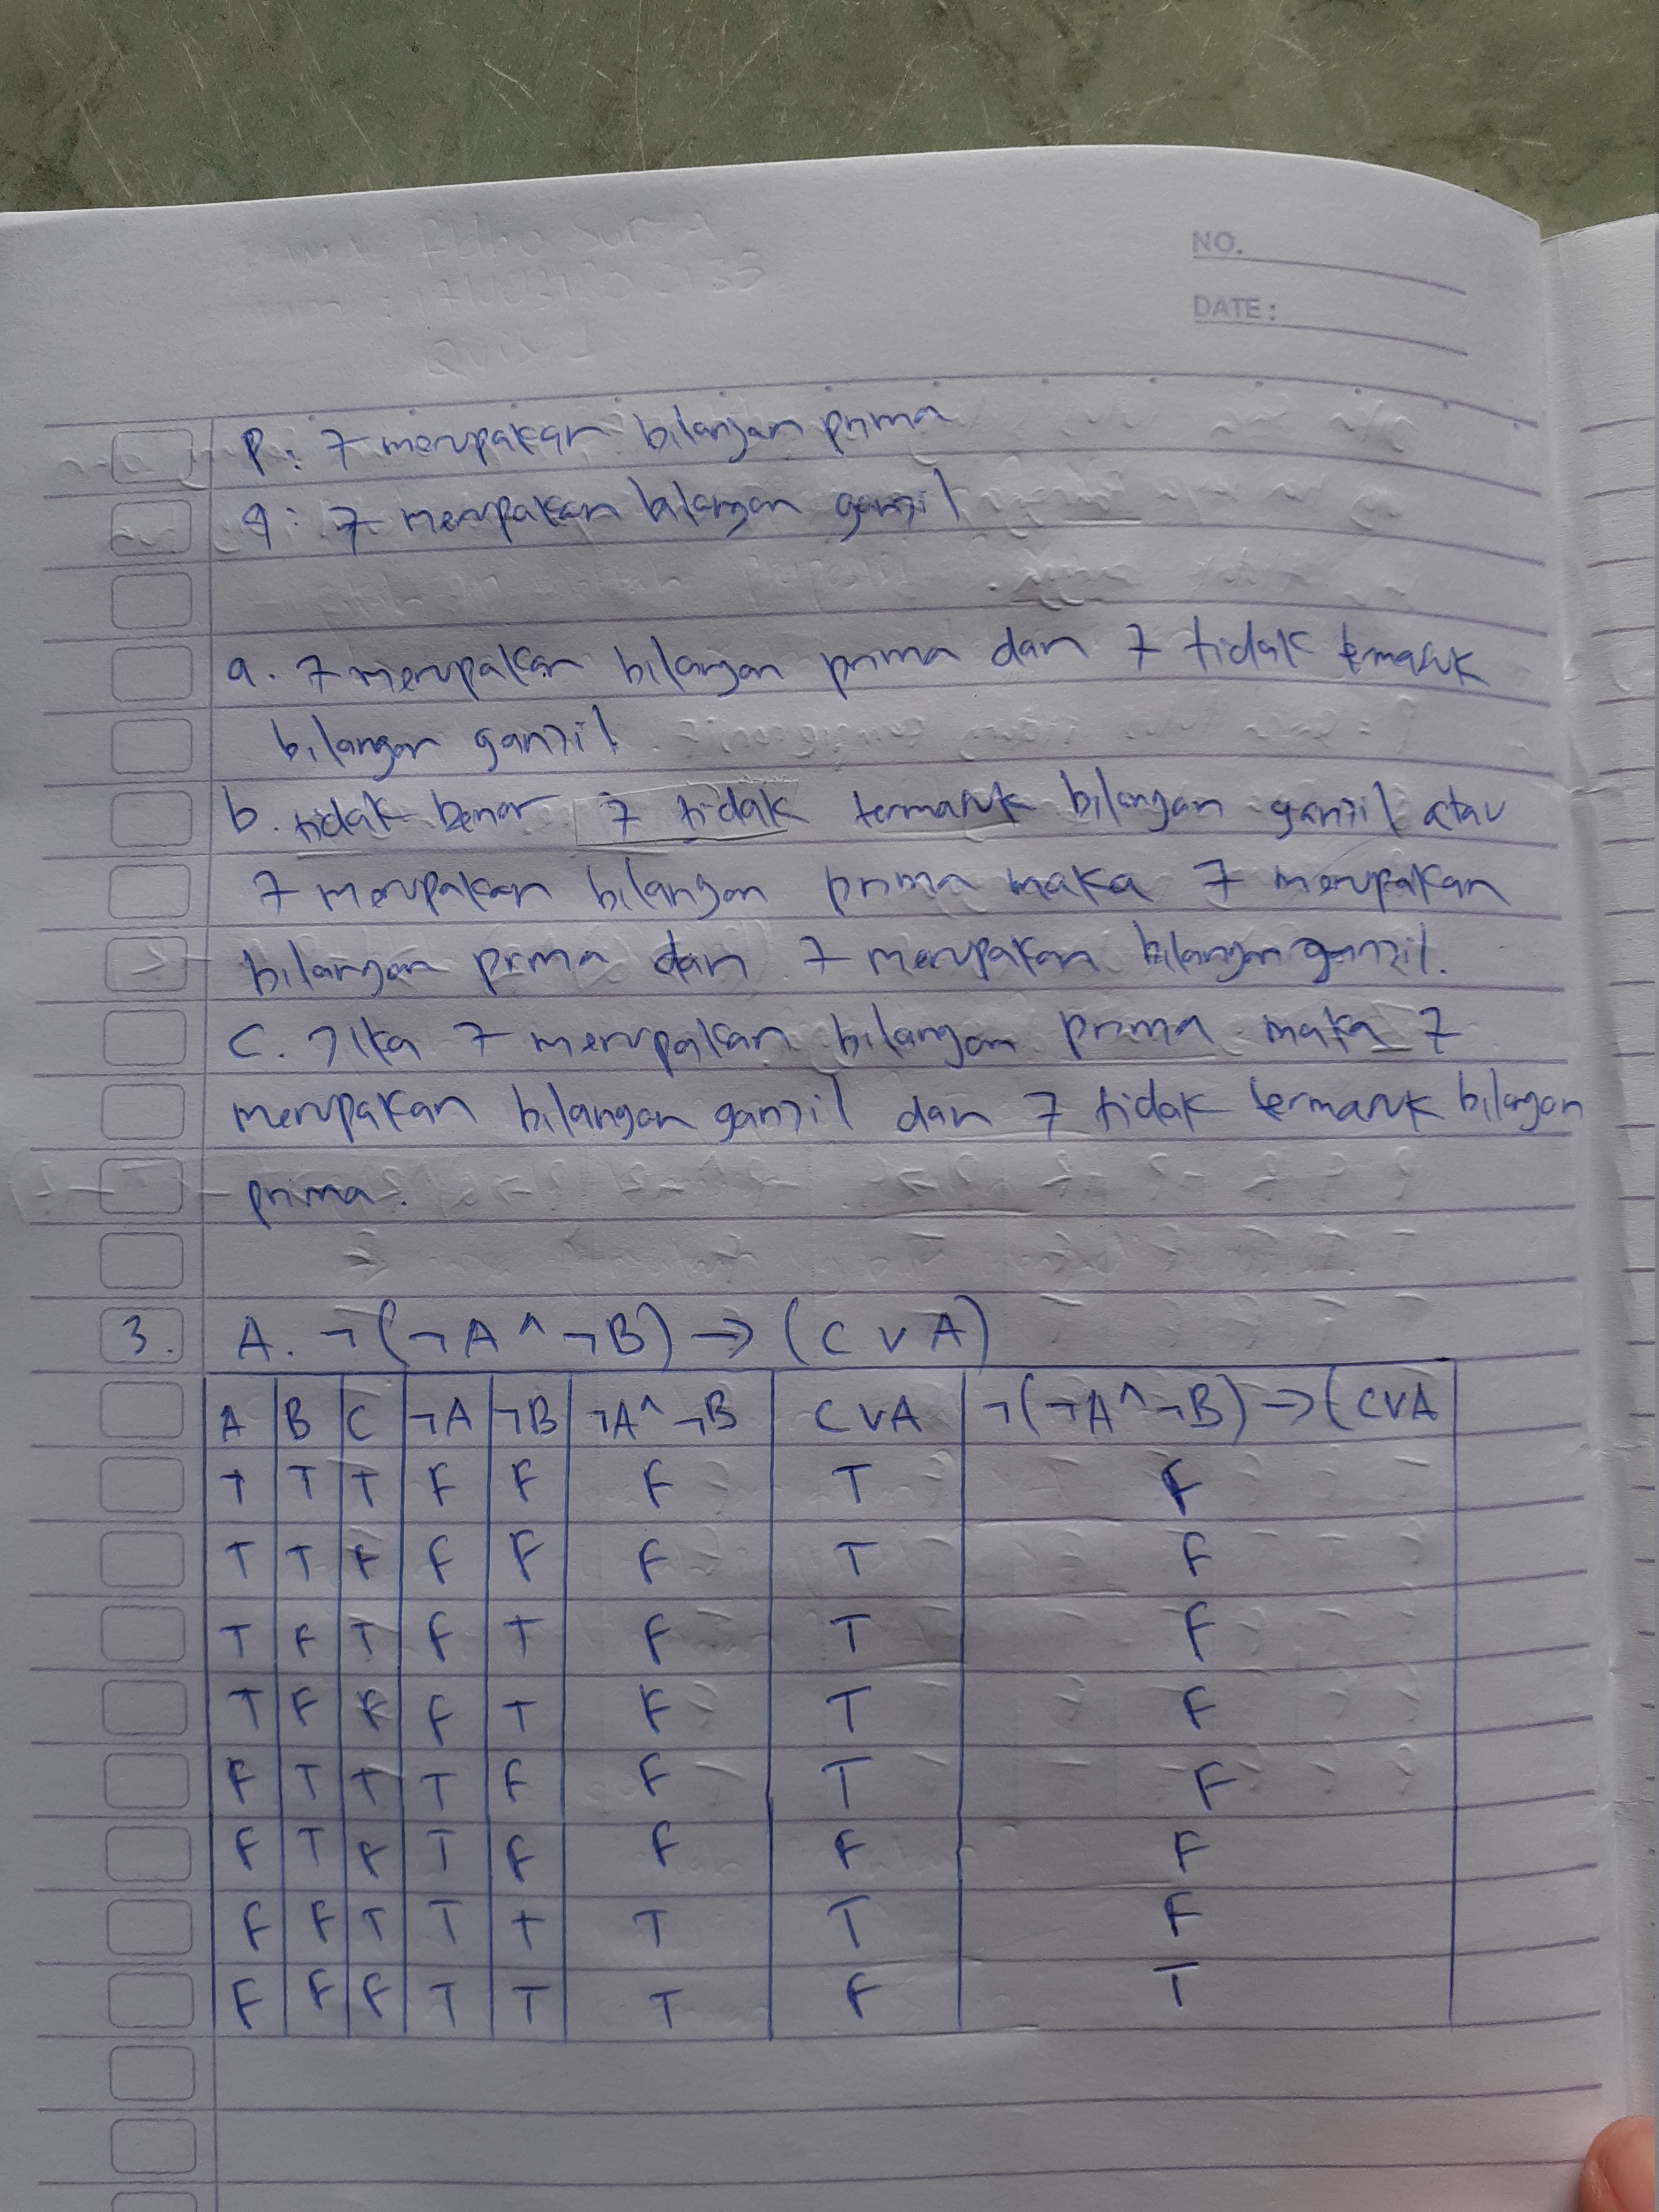 NO.
DATE:
P: 7 merupakan bilangan prima
q: 7 merupakan bilangan ganjil
a. 7 merupakan bilangan prima dan 7 tidak termasuk
bilangan ganjil.
b. tidak benar 7 tidak termasuk bilangan ganjil atau
7 merupakan bilangan prima maka 7 merupakan
bilangan prima dan 7 merupakan bilangan ganjil.
C. Jika 7 merupakan bilangan prima maka 7
merupakan bilangan ganjil dan 7 tidak termasuk bilangan
prima.
3. A. ¬(¬A ^ ¬B) → (C v A)
A B C ¬A ¬B ¬A ^ ¬B C v A ¬(¬A ^ ¬B) → (C v A
T T T F F F T F
T T F F F F T F
T F T F T F T F
T F F F T F T F
F T T T F F T F
F T F T F F F F
F F T T T T T F
F F F T T T F T